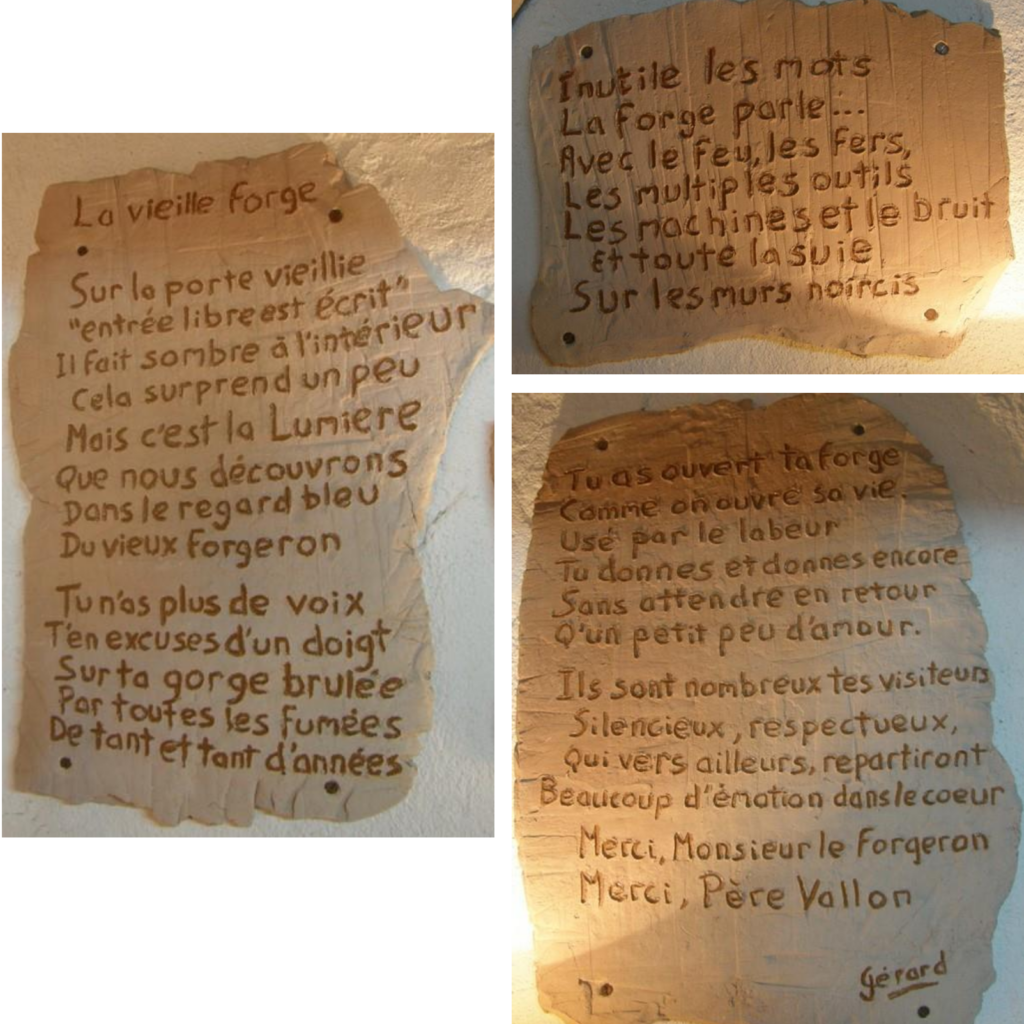 La vieille forge
Sur la porte vieillie
"entrée libre est écrit"
Il fait sombre à l'intérieur
Cela surprend un peu
Mais c'est la Lumière
Que nous découvrons
Dans le regard bleu
Du vieux forgeron
Tu n'as plus de voix
T'en excuses d'un doigt
Sur ta gorge brulée
Par toutes les fumées
De tant et tant d'années
Inutile les mots
La forge parle...
Avec le feu, les fers,
Les multiples outils
Les machines et le bruit
Et toute la suie
Sur les murs noircis
Tu as ouvert ta forge
Comme on ouvre sa vie.
Usé par le labeur
Tu donnes et donnes encore
Sans attendre en retour
Q'un petit peu d'amour.
Ils sont nombreux tes visiteurs
Silencieux, respectueux,
Qui vers ailleurs, repartiront
Beaucoup d'émotion dans le coeur
Merci, Monsieur le Forgeron
Merci, Père Vallon
Gérard